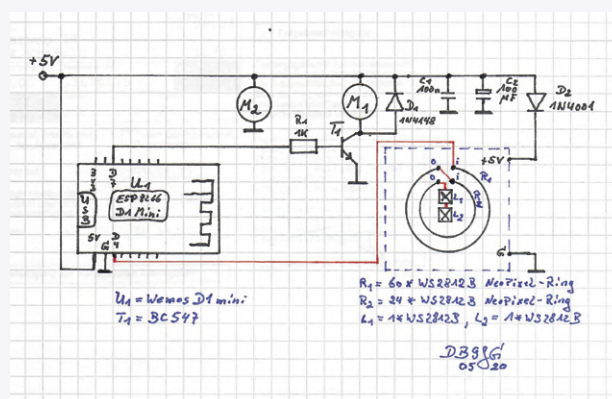 +5V
M2
M1
D1
1N4148
C1
100n
C2
100
µF
D2
1N4001
R1
1K
T1
+5V
3
3
D
7
U1
ESP8266
D1 Mini
USB
5V
G
D
4
o
i
R1
o
i
R2
L1
L2
G
U1 = Wemos D1 mini
T1 = BC547
R1 = 60 * WS2812B NeoPixel-Ring
R2 = 24 * WS2812B NeoPixel-Ring
L1 = 1*WS2812B, L2 = 1*WS2812B
05 20